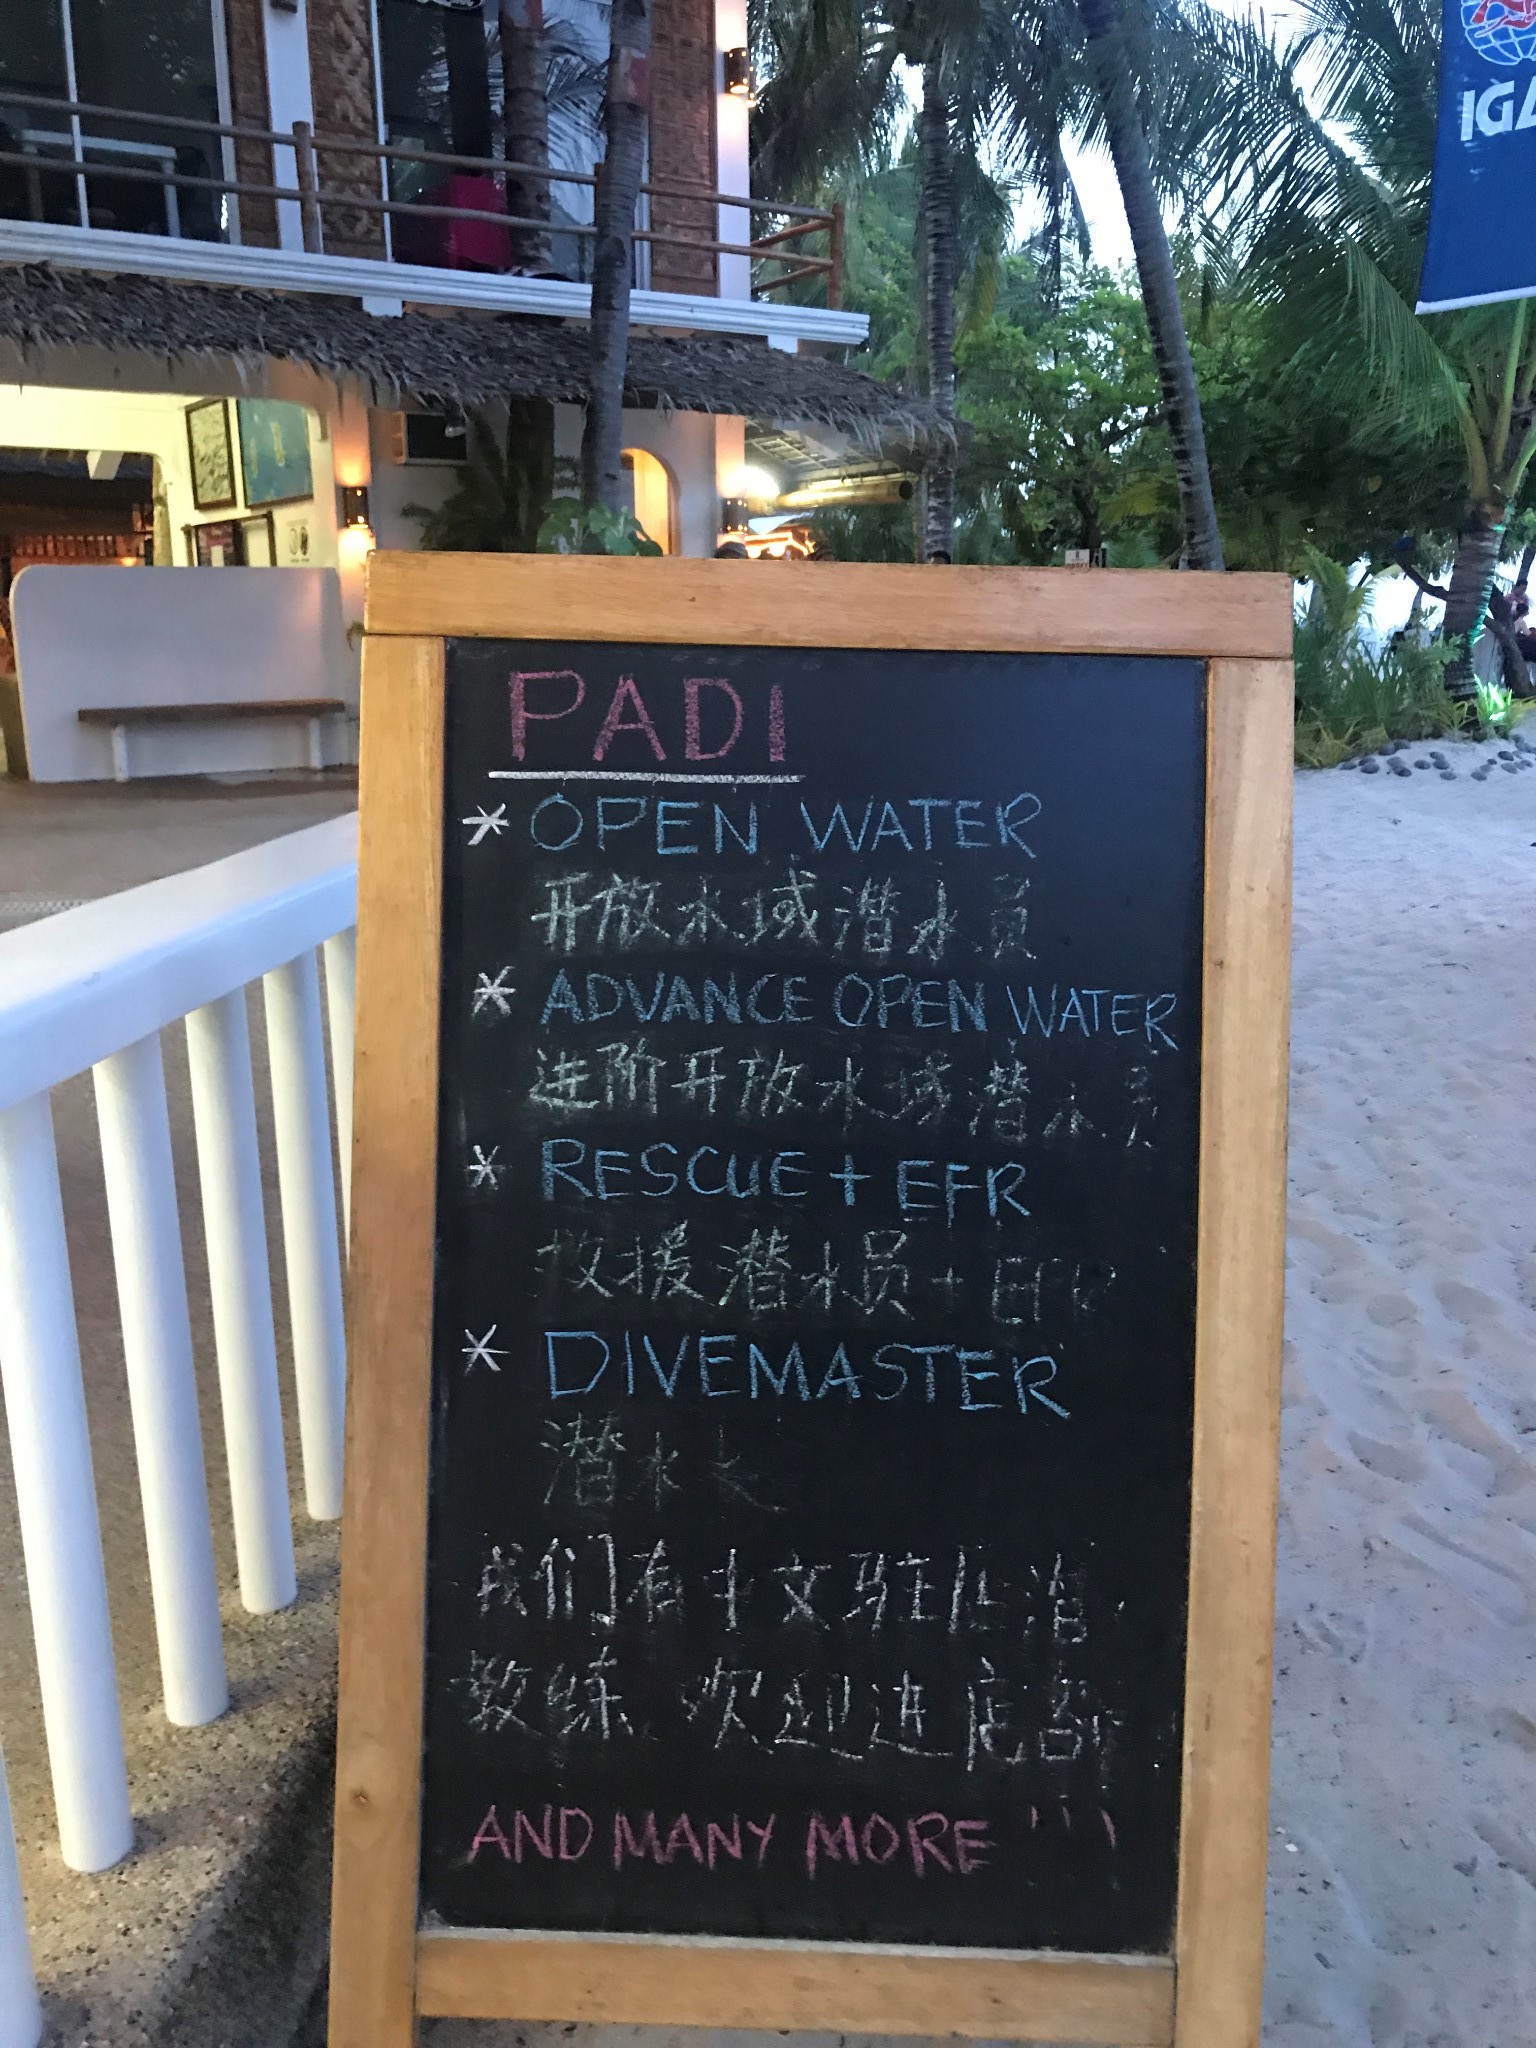 IGA
PADI
* OPEN WATER
开放水域潜水员
* ADVANCE OPEN WATER
进阶开放水域潜水员
* RESCUE + EFR
救援潜水员 + EFR
* DIVEMASTER
潜水长
我们有中文驻店潜
教练 欢迎进店咨
AND MANY MORE